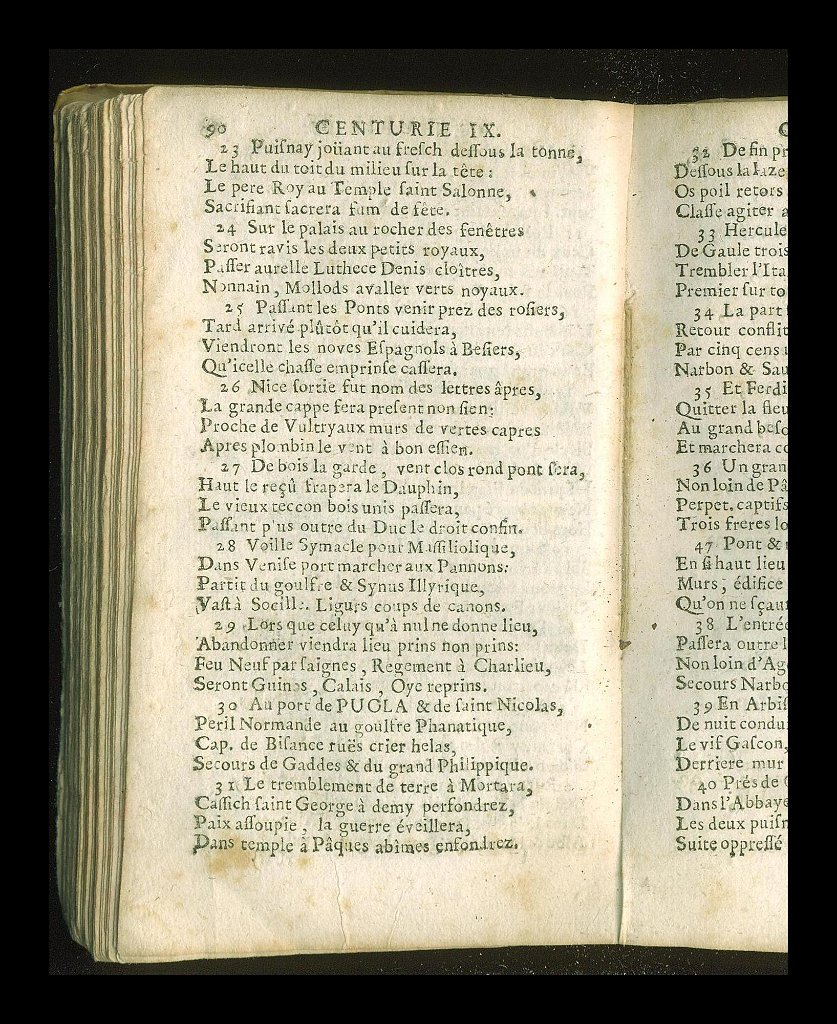 90 CENTURIE IX.
23 Puiſnay joüant au freſch deſſous la tonne,
Le haut du toit du milieu ſur la tête:
Le pere Roy au Temple ſaint Salonne,
Sacrifiant ſacrera fum' de fête.
24 Sur le palais au rocher des fenêtres
Seront ravis les deux petits royaux,
Paſſer aurelle Luthece Denis cloîtres,
Nonnain, Mollods avaller verts noyaux.
25 Paſſant les Ponts venir prez des roſiers,
Tard arrivé plûtôt qu'il cuidera,
Viendront les noves Eſpagnols à Beſiers,
Qu'icelle chaſſe emprinſe caſſera.
26 Nice ſortie ſut nom des lettres âpres,
La grande cappe fera preſent non ſien:
Proche de Vultryaux murs de vertes capres
Apres plombin le vent à bon eſſien.
27 De bois la garde, vent clos rond pont ſera,
Haut le reçû frapera le Dauphin,
Le vieux teccon bois unis paſſera,
Paſſant p'us outre du Duc le droit confin.
28 Voille Symacle pour Maſſiliolique,
Dans Veniſe port marcher aux Pannons:
Partit du goulfre & Synus Illyrique,
Vaſt à Socille. Ligurs coups de canons.
29 Lors que celuy qu'à nul ne donne lieu,
Abandonner viendra lieu prins non prins:
Feu Neuf par ſaignes, Regement à Charlieu,
Seront Guines, Calais, Oye reprins.
30 Au port de PUGLA & de ſaint Nicolas,
Peril Normande au goulfre Phanatique,
Cap. de Biſance ruës crier helas,
Secours de Gaddes & du grand Philippique.
31 Le tremblement de terre à Mortara,
Caſſich ſaint George à demy perfondrez,
Paix aſſoupie, la guerre éveillera,
Dans temple à Pâques abîmes enfondrez.
32 De fin
Deſſous la
Os poil retors
Claſſe agiter
33 Hercule
De Gaule trois
Trembler l'Ita
Premier ſur to
34 La part
Retour conflit
Par cinq cens
Narbon & Sau
35 Et Ferdi
Quitter la fleu
Au grand beſo
Et marchera co
36 Un gran
Non loin de Pâ
Perpet. captifs
Trois freres lo
47 Pont &
En ſi haut lieu
Murs, édifice
Qu'on ne ſçau
38 L'entrée
Paſſera outre
Non loin d'Ag
Secours Narbo
39 En Arbiſ
De nuit condu
Le vif Gaſcon,
Derriere mur
40 Prés de
Dans l'Abbaye
Les deux puiſn
Suite oppreſſé